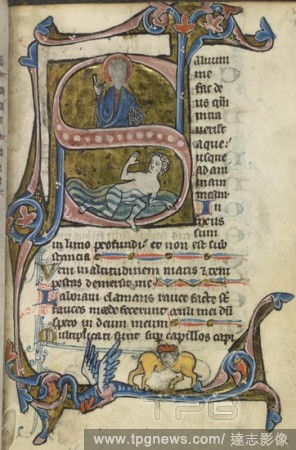 aluum
me
fac de
us qm̄
intra
uerūt
aque
usque
ad am
mam
meam
In
fixus
sum
in limo profundi et non est sub
stancia
Veni in altitudinem maris et tem
pestas demersit me
Laboraui clamans rauce facte sūt
fauces mee
spero in deum meum
Multiplicati sunt sup capillos capi
TPG
www.tpgnews.com/ 達志影像